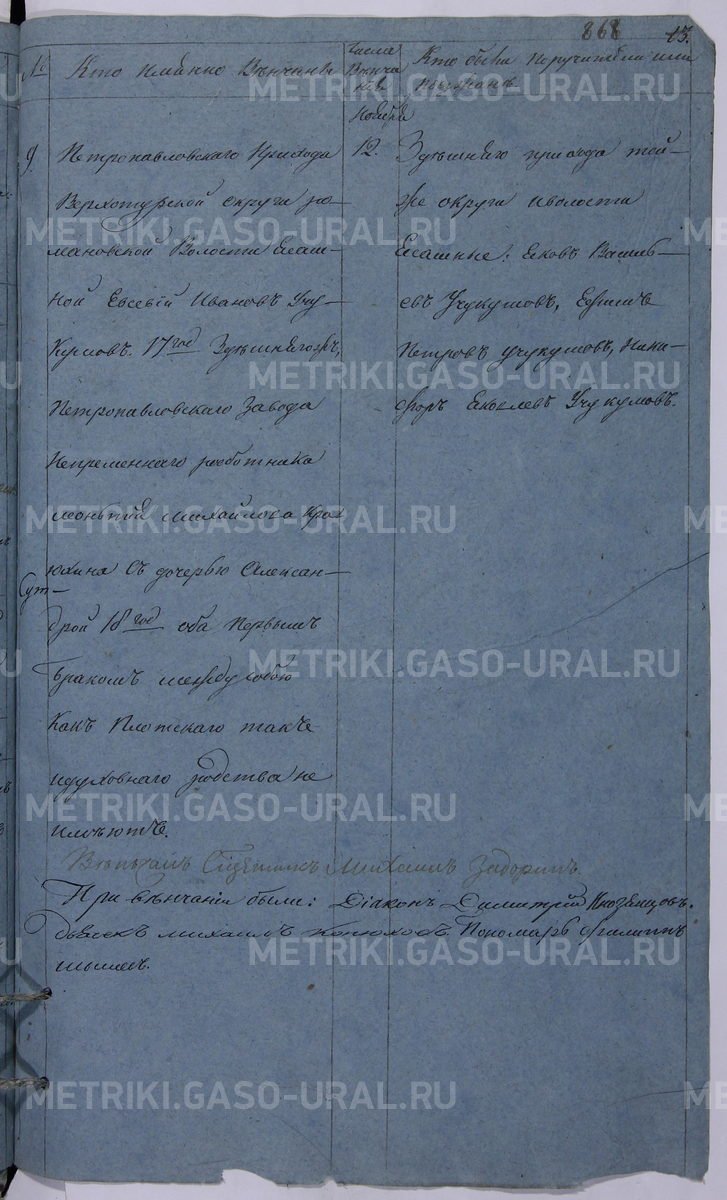 868 13.
№
Кто Имянно Венчаны
Числа Венчания
Кто были Поручители или
Поезжане.
Ноября
9.
Петропавловскаго Прихода
Верхотурской округи ро-
мановской Волости Ясаш-
ной Евсевiй Ивановъ Учу-
Кумовъ. 17 год Здешнягожъ,
Петропавловскаго Завода
Непременнаго работника
Михайлова
юхина съ дочерью Алексан-
дрой 18 год оба Первымъ
Бракомъ между собою
Какъ Плотскаго такъ
идуховнаго родства не
имеютъ.
12.
Здешняго прихода той-
же округи иволости
Ясашные: Яковъ Василь-
евъ Учукумовъ, Ефимъ
Петровъ Учукумовъ, Ники-
форъ Яковлевъ Учукумовъ.
Венчалъ Священникъ Михаилъ
При венчанiи были: Дiаконъ Димитрiй
Дьячекъ Михаилъ Конюховъ. Пономарь Филиппъ
METRIKI.GASO-URAL.RU